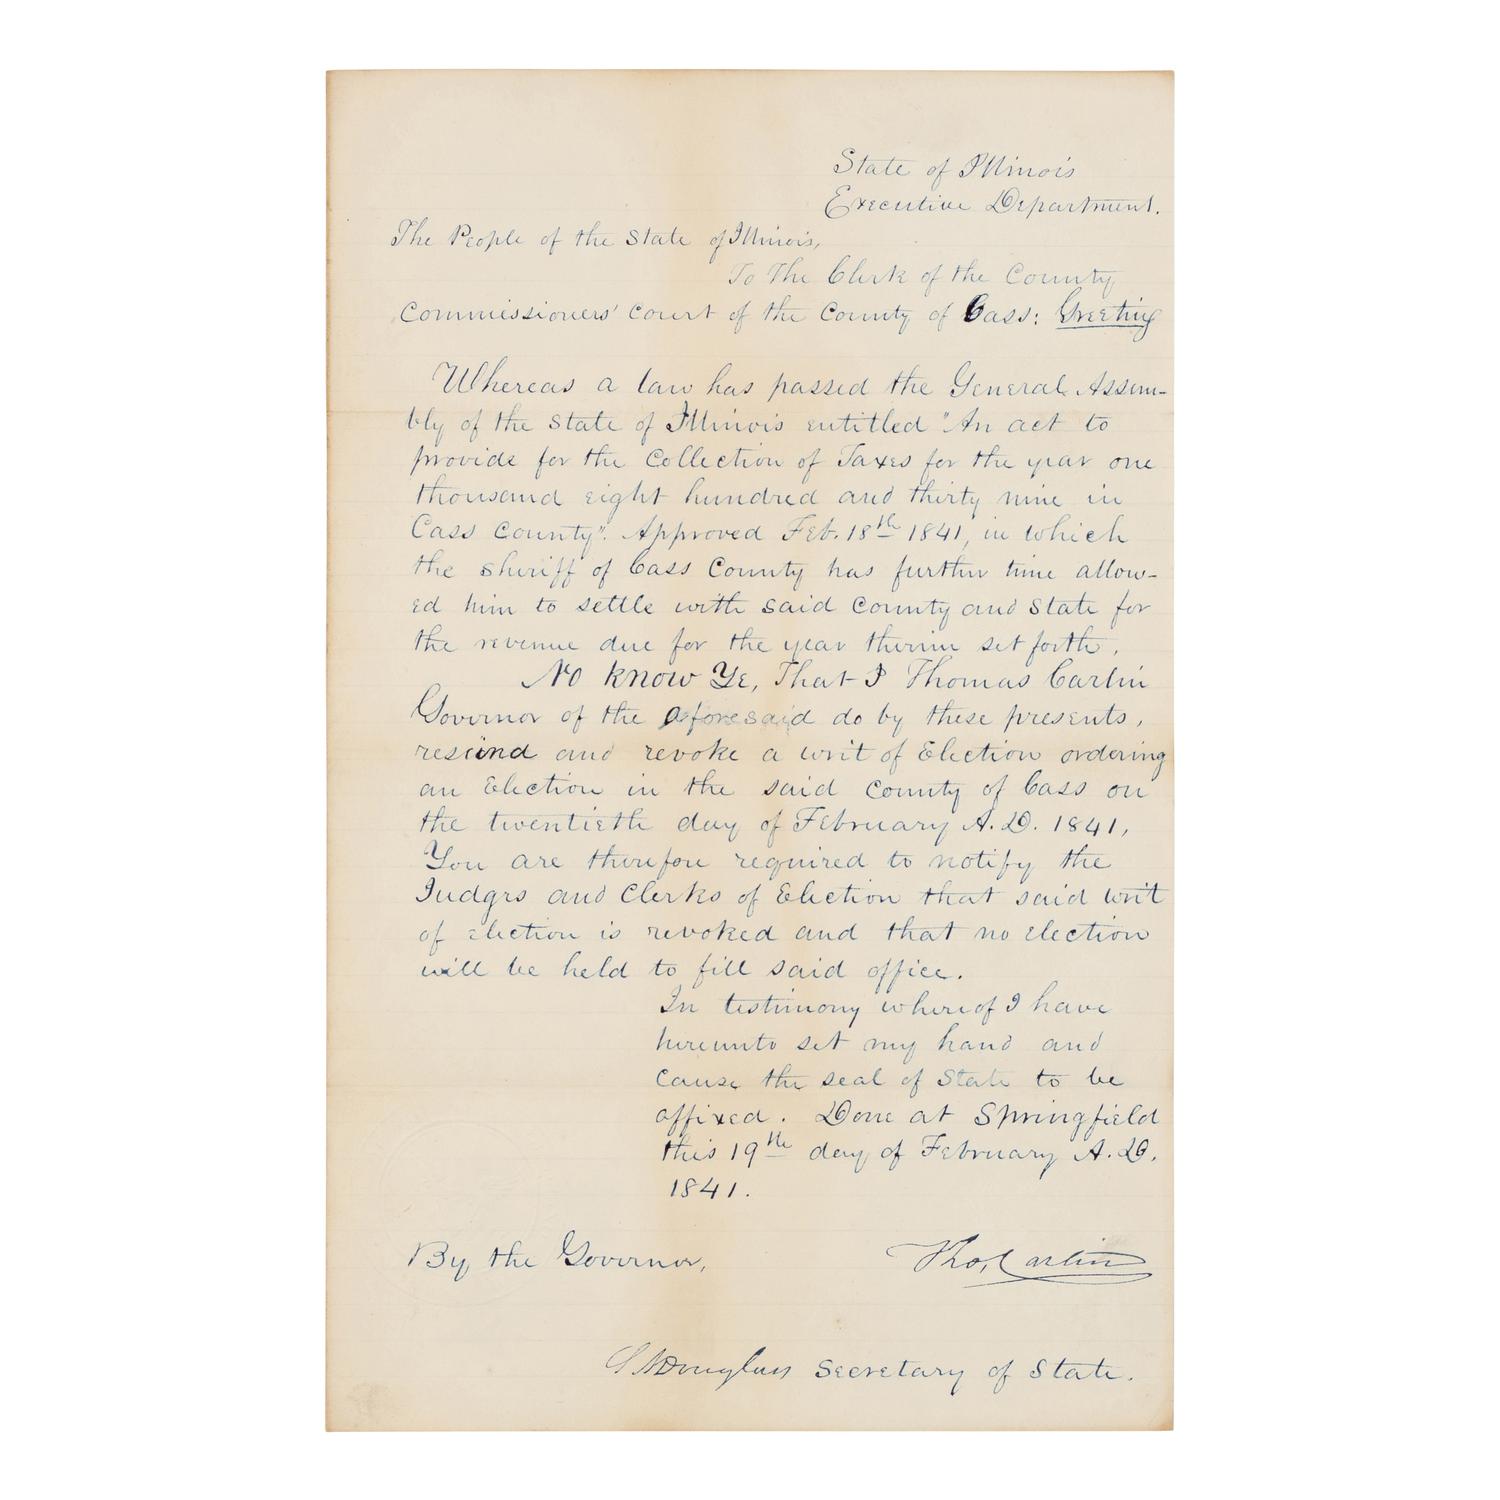 State of Illinois
Executive Department.
The People of the State of Illinois,
To The Clerk of the County
Commissioners' Court of the County of Cass: Greeting
Whereas a law has passed the General Assem-
bly of the State of Illinois entitled "An act to
provide for the Collection of Taxes for the year one
thousand eight hundred and thirty nine in
Cass County". Approved Feb. 18th 1841, in which
the Sheriff of Cass County has further time allow-
ed him to settle with said County and State for
the revenue due for the year therein set forth.
No Know Ye, That I Thomas Carlin
Governor of the aforesaid do by these presents,
rescind and revoke a writ of Election ordering
an Election in the said County of Cass on
the twentieth day of February A.D. 1841,
You are therefore required to notify the
Judgrs and Clerks of Election that said writ
of election is revoked and that no election
will be held to fill said office.
In testimony whereof I have
hereunto set my hand and
cause the seal of State to be
affixed. Done at Springfield
this 19th day of February A.D.
1841.
By the Governor,
Tho, Carlin
S A Douglass Secretary of State.